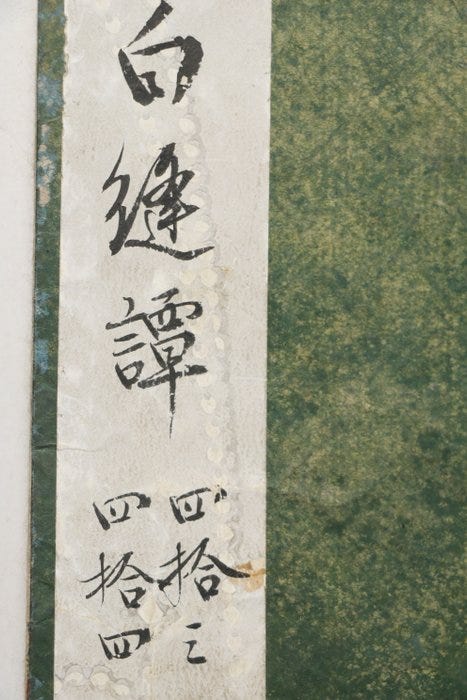 白縫譚
四拾三
四拾四